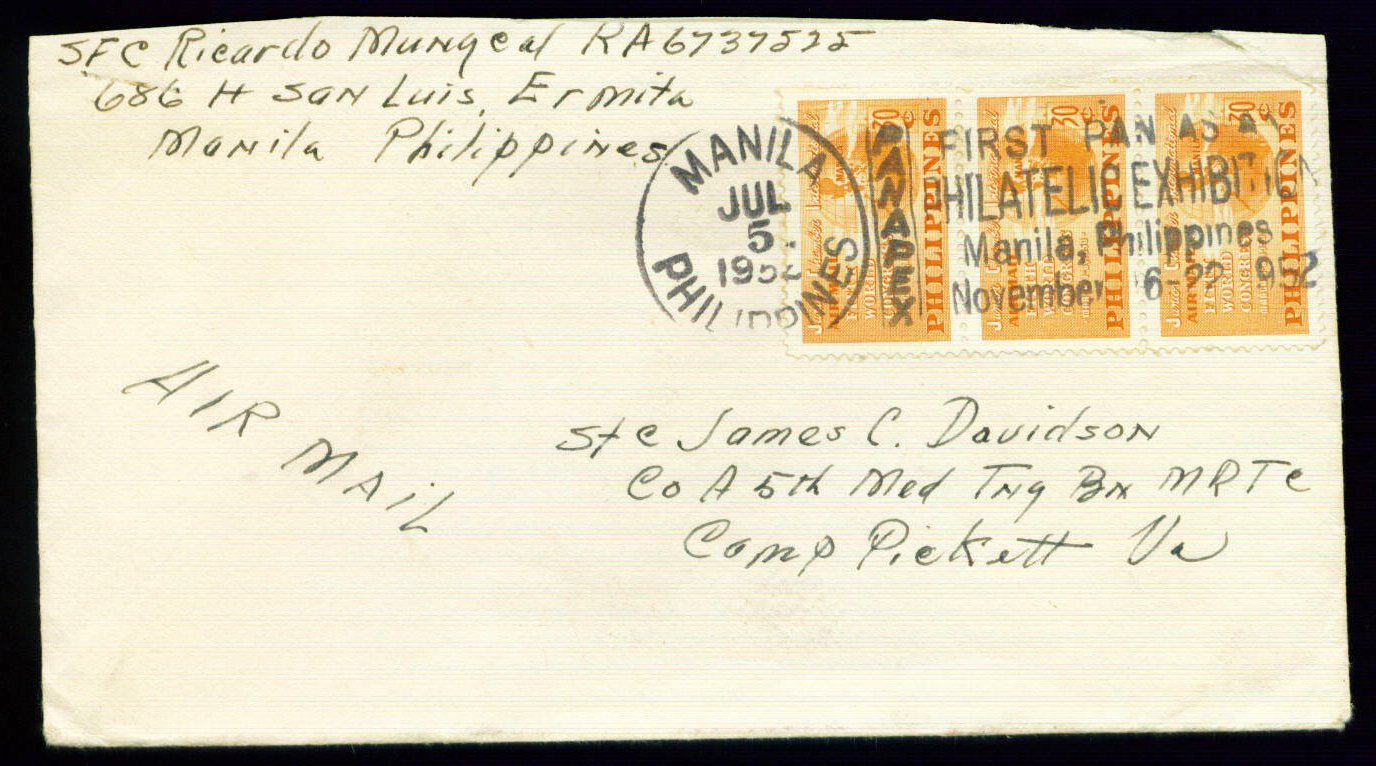 SFC Ricardo Mungcal RA6737525
686 H San Luis, Ermita
Manila Philippines
MANILA
JUL
5
1952
PHILIPPINES
PANAPEX
FIRST PAN ASIAN
PHILATELIC EXHIBITION
Manila, Philippines
November 16-22 1952
30c
PHILIPPINES
30c
PHILIPPINES
30c
PHILIPPINES
AIR MAIL
Sfc James C. Davidson
Co A 5th Med Tng Bn MRTC
Camp Pickett Va